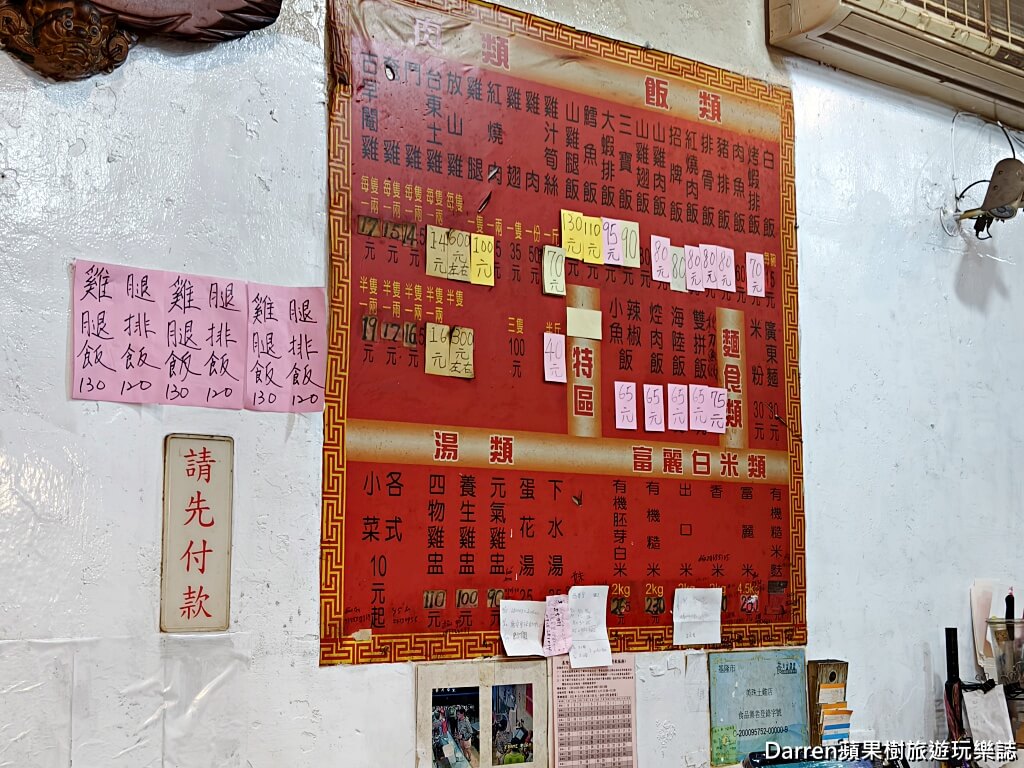 肉類
飯類
古早閹雞
台東土雞
放山雞
雞腿
紅燒肉
雞翅
雞肉
雞汁筍絲
山雞腿飯
鱈魚飯
大蝦排飯
三寶飯
山雞翅飯
山雞肉飯
招牌飯
紅燒肉飯
排骨飯
豬排飯
肉魚飯
烤蝦排飯
白飯
每隻一兩
每隻一兩
每隻一兩
每隻一兩
每隻
一隻
一兩
一隻
一份
一斤
17元
15元
14元
14元
600元左右
100元
35元
70元
130元
110元
95元
90
80元
80
80元
80元
80元
70元
半隻一兩
半隻一兩
半隻一兩
半隻一兩
半隻
三隻
半斤
19元
17元
16元
16元
300元左右
100元
40元
特區
小魚飯
辣椒飯
焢肉飯
海陸飯
雙拼飯
65元
65元
65元
65元
75元
麵食類
米粉 30元
廣東麵 30元
雞腿飯 130
腿排飯 120
雞腿飯 130
腿排飯 120
雞腿飯 130
腿排飯 120
請先付款
湯類
富麗白米類
各式
小菜10元起
四物雞盅 110元
養生雞盅 100元
元氣雞盅 90元
蛋花湯
下水湯
有機胚芽白米 2kg
有機糙米 2kg 230元
出口米 2kg
香米
富麗米 4.5kg
有機糙米麩
基隆市
美珠土雞店
食品業者登錄字號
-200095752-00000-9
Darren蘋果樹旅遊玩樂誌